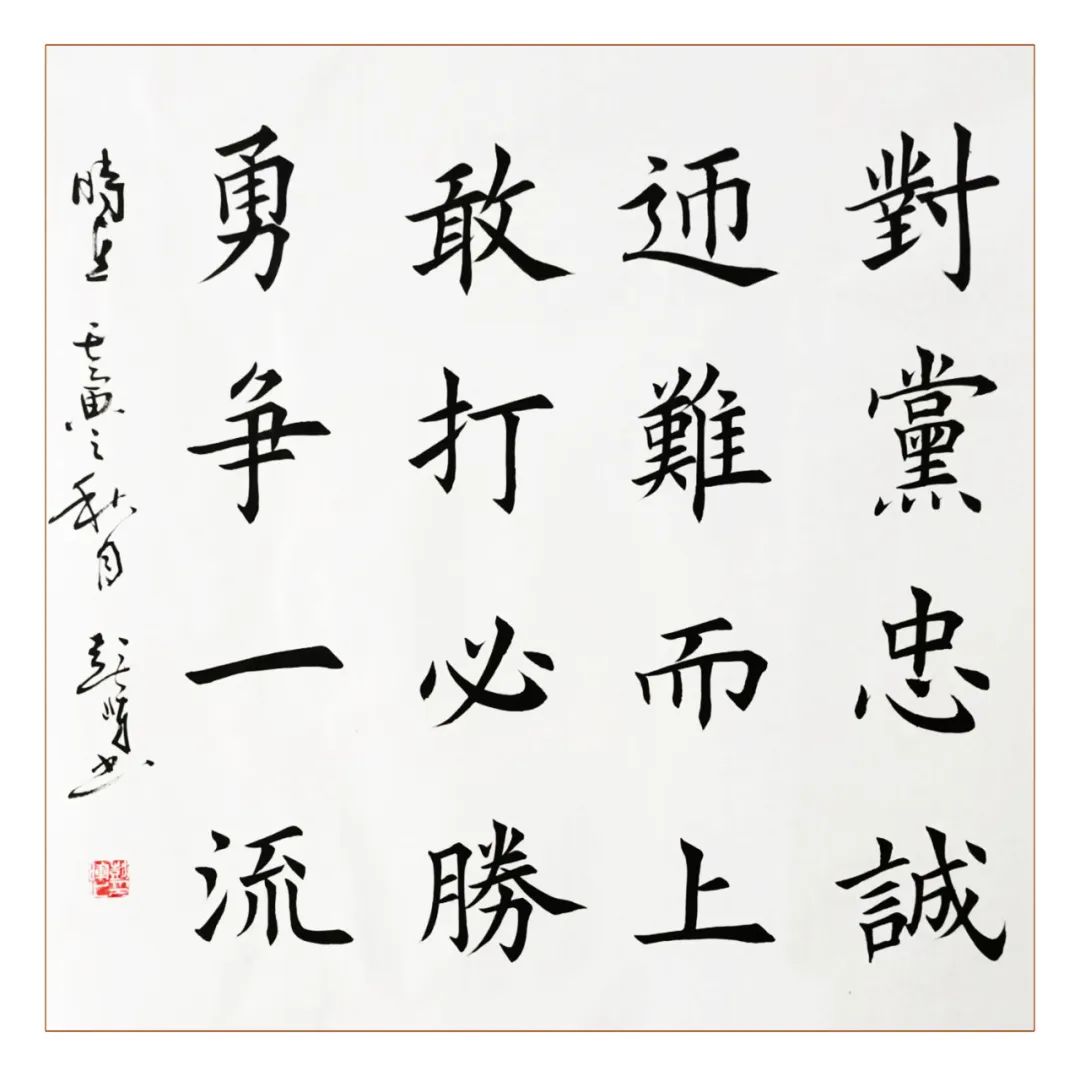 對黨忠誠
迊難而上
敢打必勝
勇爭一流
時在 壬寅之秋月 彭 书